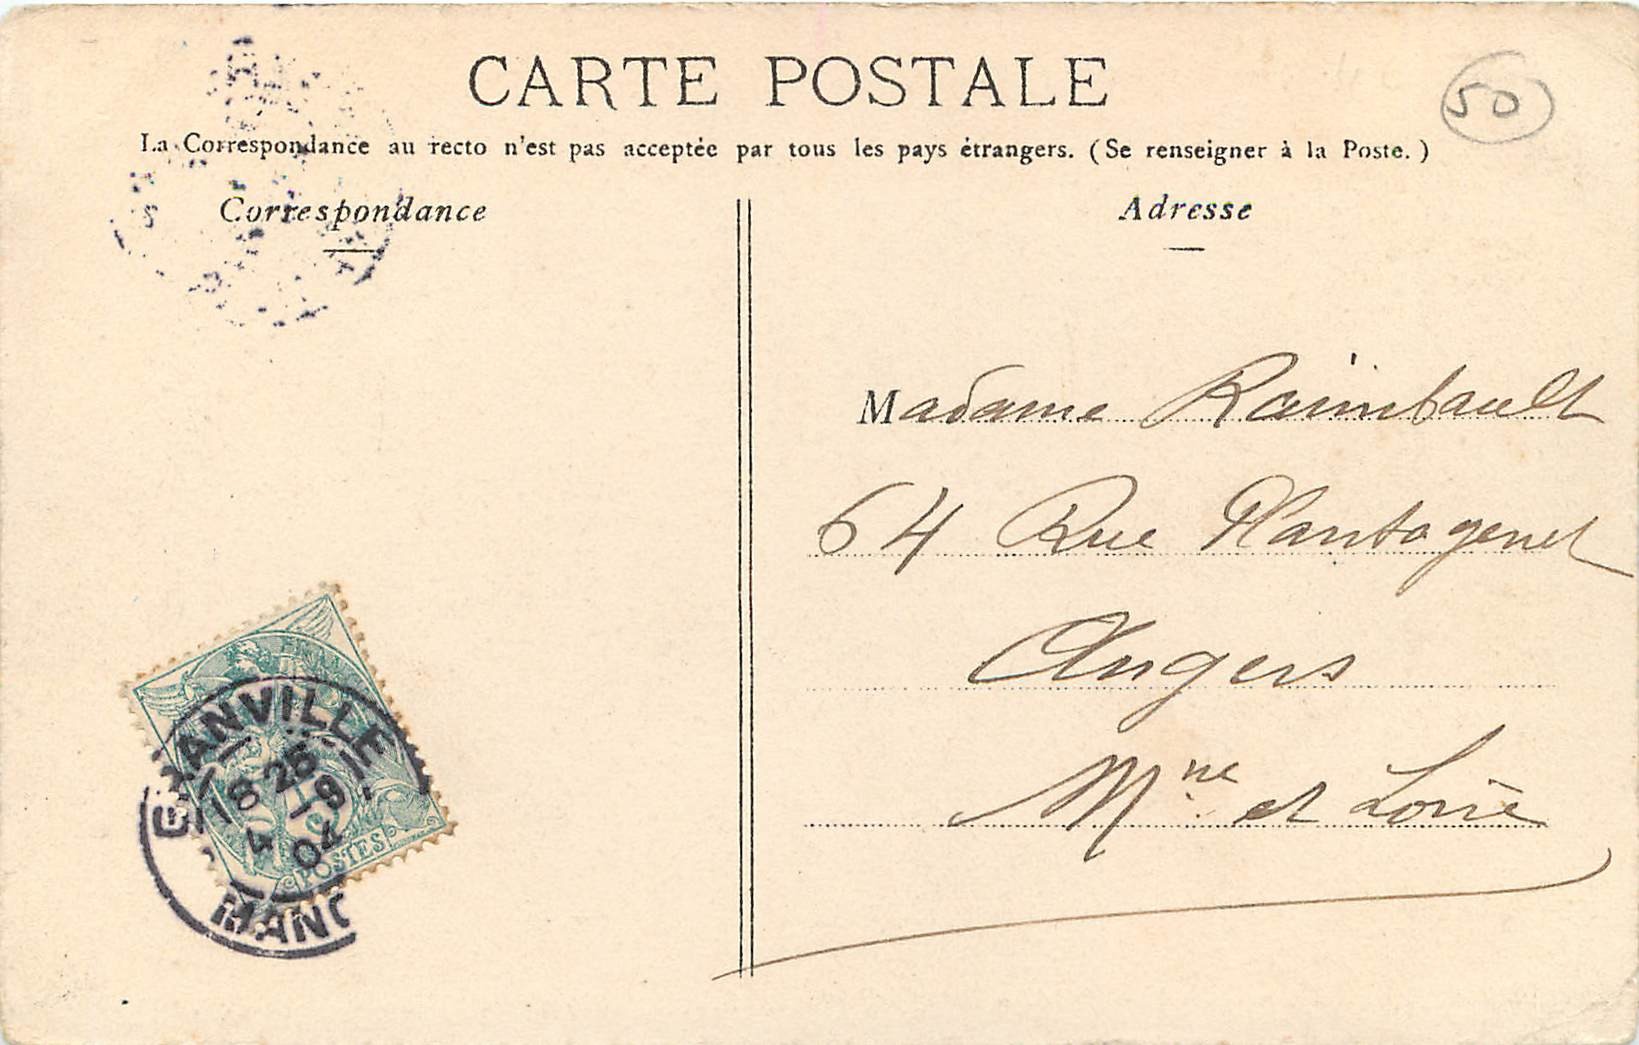 CARTE POSTALE
50
La Correspondance au recto n'est pas acceptée par tous les pays étrangers. (Se renseigner à la Poste.)
Correspondance
Adresse
Madame Raimbault
64 Rue Plantagenet
Angers
Mne et Loire
GRANVILLE
18 25
4 - 9
04
POSTES
MANC